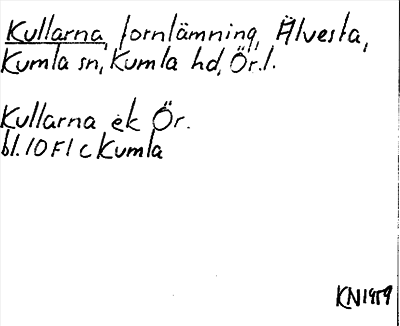 Kullarna, fornlämning, Älvesta,
Kumla sn, Kumla hd, Ör. l.
Kullarna ek Ör.
bl. 10 F 1 c Kumla
KN 1959